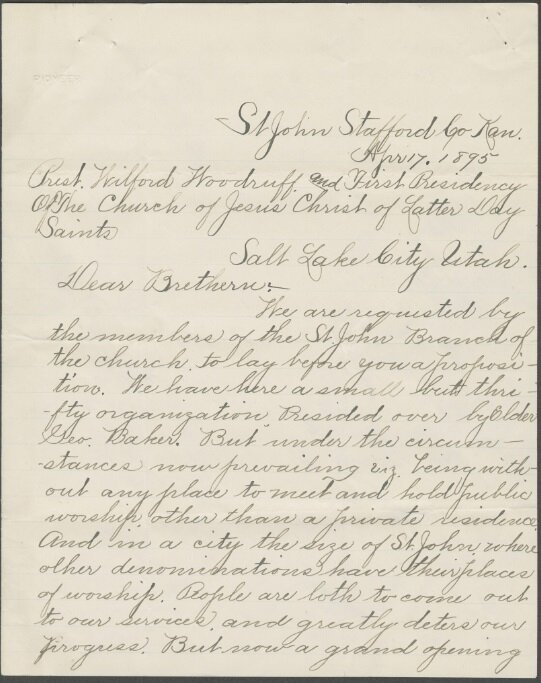 PIONEER
St John Stafford Co Kan.
Apr 17, 1895
Prest. Wilford Woodruff. and First Presidency
Of The Church of Jesus Christ of Latter Day
Saints
Salt Lake City Utah.
Dear Brethern:-
We are requested by
the members of the St John Branch of
the church. to lay before you a proposi-
tion. We have here a small but thri-
-fty organization Presided over by Elder
Geo. Baker. But under the circum-
-stances now prevailing viz being with-
out any place to meet and hold public
worship. other than a private residence.
And in a city the size of St John where
other denominations have their places
of worship. People are loth to come out
to our services. and greatly deters our
progress. But now a grand opening